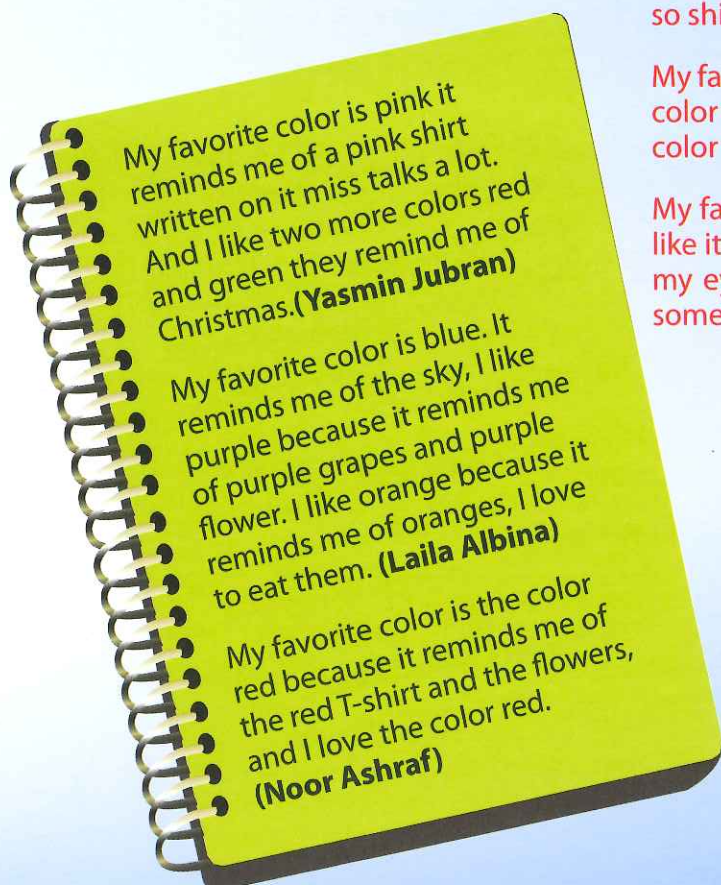 My favorite color is pink it
reminds me of a pink shirt
written on it miss talks a lot.
And I like two more colors red
and green they remind me of
Christmas.(Yasmin Jubran)
My favorite color is blue. It
reminds me of the sky, I like
purple because it reminds me
of purple grapes and purple
flower. I like orange because it
reminds me of oranges, I love
to eat them. (Laila Albina)
My favorite color is the color
red because it reminds me of
the red T-shirt and the flowers,
and I love the color red.
(Noor Ashraf)
so shi
My fa
color
color
My fa
like it
my ey
some